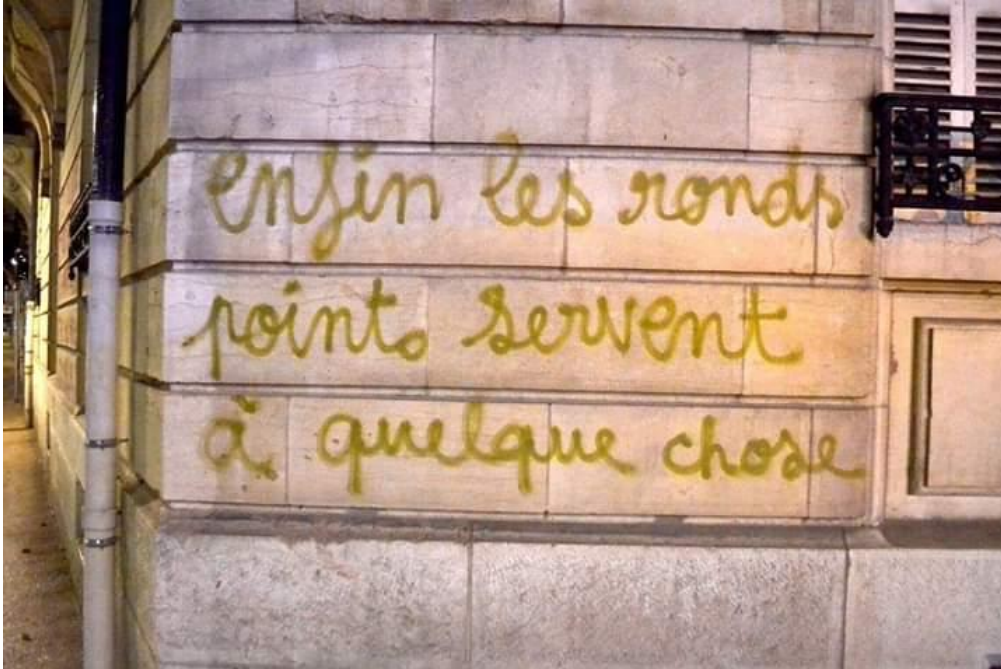 enfin les ronds
points servent
à quelque chose